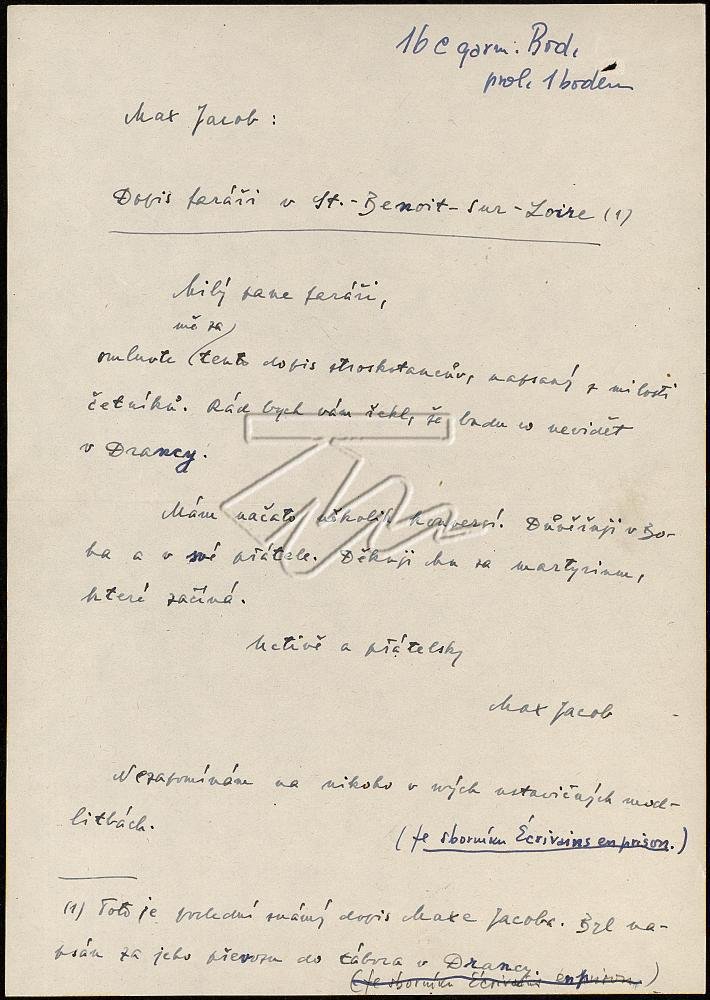 16 c garm. Bod.
prol. 1 bodem
Max Jacob:
Dopis faráři v St.-Benoit-sur-Loire (1)
Milý pane faráři,
mě za
omluvte tento dopis ztroskotancův, napsaný z milosti
četníků. Rád bych vám řekl, že budu co nevidět
v Drancy.
Mám načato několik konversí. Důvěřuji v Bo-
ha a v své přátele. Děkuji Mu za martyrium,
které začíná.
Uctivě a přátelsky
Max Jacob
Nezapomínám na nikoho v svých ustavičných mod-
litbách.
(Ze sborníku Écrivains en prison.)
(1) Toto je poslední známý dopis Maxe Jacoba. Byl na-
psán za jeho převozu do tábora v Drancy.
(Ze sborníku Écrivains en prison)